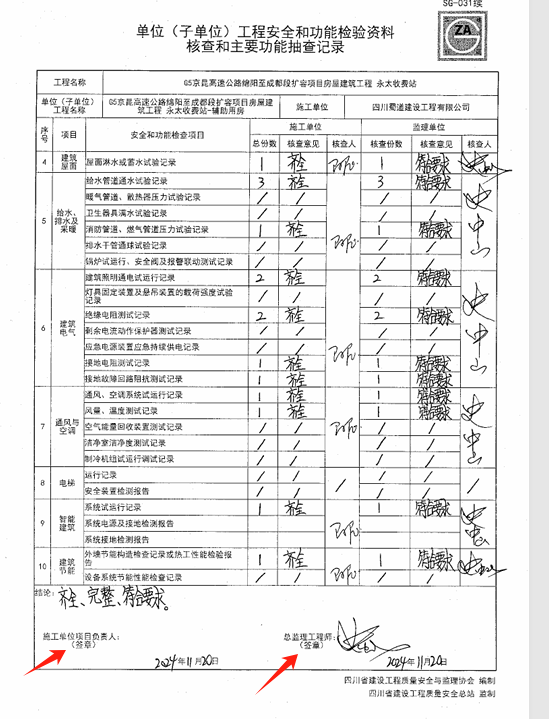 SG-031续
单位（子单位）工程安全和功能检验资料
核查和主要功能抽查记录
ZA
工程名称 G5京昆高速公路绵阳至成都段扩容项目房屋建筑工程 永太收费站
单位（子单位）工程名称 G5京昆高速公路绵阳至成都段扩容项目房屋建筑工程 永太收费站-辅助用房 施工单位 四川蜀道建设工程有限公司
序号 项目 安全和功能检查项目 施工单位 监理单位
总份数 核查意见 核查人 核查份数 核查意见 核查人
4 建筑屋面 屋面淋水或蓄水试验记录 1 齐全 1 符合要求
5 给水、排水及采暖 给水管道通水试验记录 3 齐全 3 符合要求
暖气管道、散热器压力试验记录 / / / /
卫生器具满水试验记录 / / / /
消防管道、燃气管道压力试验记录 1 齐全 1 符合要求
排水干管通球试验记录 / / / /
锅炉试运行、安全阀及报警联动测试记录 / / / /
6 建筑电气 建筑照明通电试运行记录 2 齐全 2 符合要求
灯具固定装置及悬吊装置的载荷强度试验记录 / / / /
绝缘电阻测试记录 2 齐全 2 符合要求
剩余电流动作保护器测试记录 / / / /
应急电源装置应急持续供电记录 / / / /
接地电阻测试记录 1 齐全 1 符合要求
接地故障回路阻抗测试记录 1 齐全 1 符合要求
7 通风与空调 通风、空调系统试运行记录 1 齐全 1 符合要求
风量、温度测试记录 1 齐全 1 符合要求
空气能量回收装置测试记录 / / / /
洁净室洁净度测试记录 / / / /
制冷机组试运行调试记录 / / / /
8 电梯 运行记录 / / / / / /
安全装置检测报告 / / / /
9 智能建筑 系统试运行记录 1 齐全 1 符合要求
系统电源及接地检测报告
系统接地检测报告
10 建筑节能 外墙节能构造检查记录或热工性能检验报告 1 齐全 1 符合要求
设备系统节能性能检查记录 / / / /
结论：齐全、完整、符合要求。
施工单位项目负责人： 总监理工程师：
（签章） （签章）
2024年11月20日 2024年11月20日
四川省建设工程质量安全与监理协会 编制
四川省建设工程质量安全总站 监制